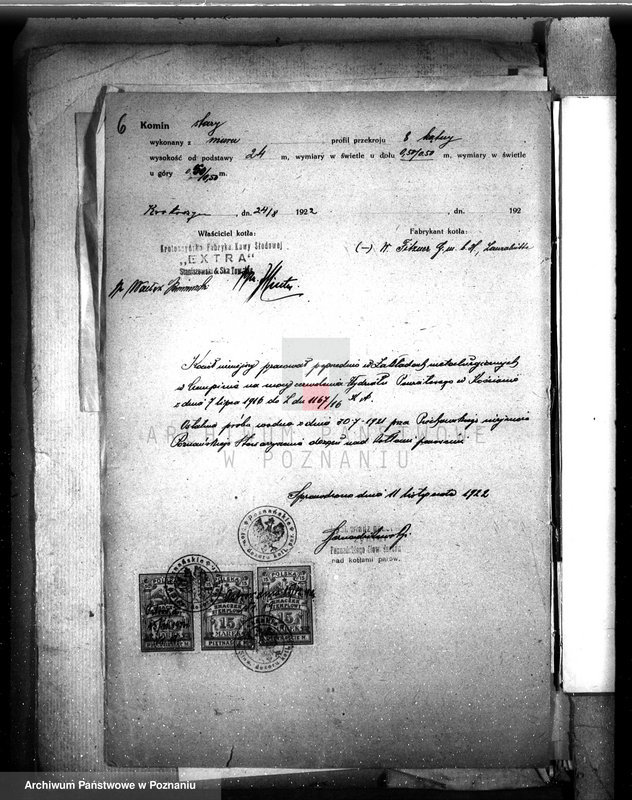 6 Komin stary
wykonany z muru, profil przekroju 8 kątny
wysokość od podstawy 24 m, wymiary w świetle u dołu 0,50/0,50 m, wymiary w świetle
u góry 0,50/0,50 m.
Krotoszyn, dn. 24/8 1922 , dn. 192
Właściciel kotła: Fabrykant kotła:
Krotoszyńska Fabryka Kawy Słodowej
"EXTRA"
Staniszewski & Ska Tow.
(—) W. Fitzner G.m.b.H, Laurahütte
Kocioł niniejszy pracował poprzednio w Zakładach metalurgicznych
w na mocy zezwolenia Wydziału Powiatowego w Kościanie
z dnia 7 lipca 1916 do L. dz. 1167/16 K.A.
Ostatnia próba wodna z dnia 30.7.1921 prze inżyniera
Poznańskiego Stowarzyszenia dozoru nad kotłami parowemi.
ARCHIWUM PAŃSTWOWE
W POZNANIU
Sprawdzono dnia 11 listopada 1922
Poznańskiego Stow. dozoru
nad kotłami parow.
POLSKA
ZNACZEK STEMPLOWY
15 MAREK
PIĘTNAŚCIE M.
Archiwum Państwowe w Poznaniu